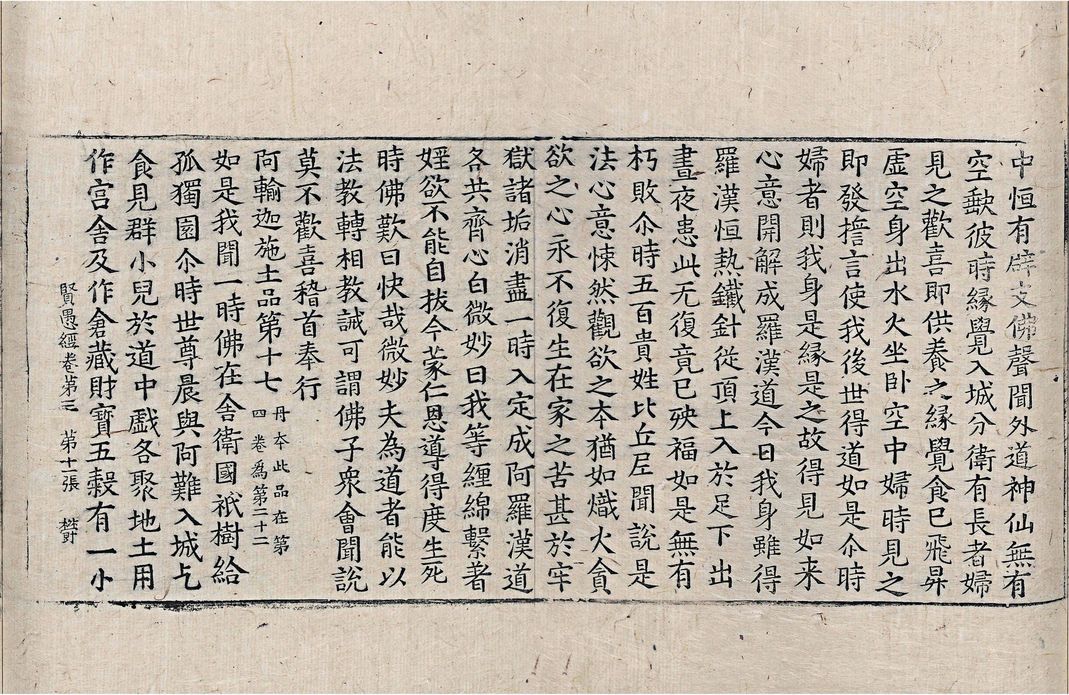 中恒有辟支佛聲聞外道神仙無有
空歎彼時緣覺入城分衛有長者婦
見之歡喜即供養之緣覺食已飛昇
虛空身出水火坐卧空中婦時見之
即發擔言使我後世得道如是尒時
婦者則我身是緣是之故得見如來
心意開解成羅漢道今日我身雖得
羅漢恒熱鐵針從頂上入於足下出
晝夜患此无復竟已殃福如是無有
朽敗尒時五百貴姓比丘𡰱聞說是
法心意悚然觀欲之本猶如熾火貪
欲之心永不復生在家之苦甚於牢
獄諸垢消盡一時入定成阿羅漢道
各共齊心白微妙曰我等纏綿繫著
婬欲不能自拔今蒙仁恩導得度生死
時佛歎曰快哉微妙夫為道者能以
法教轉相教誡可謂佛子衆會聞說
莫不歡喜稽首奉行
阿輸迦施土品第十七 丹夲此品在第四卷為第二十二
如是我聞一時佛在舍衛國祇樹給
孤獨園尒時世尊晨與阿難入城乞
食見群小兒於道中戲各聚地土用
作宮舍及作倉藏財寶五穀有一小
賢愚經卷第三 第十一張